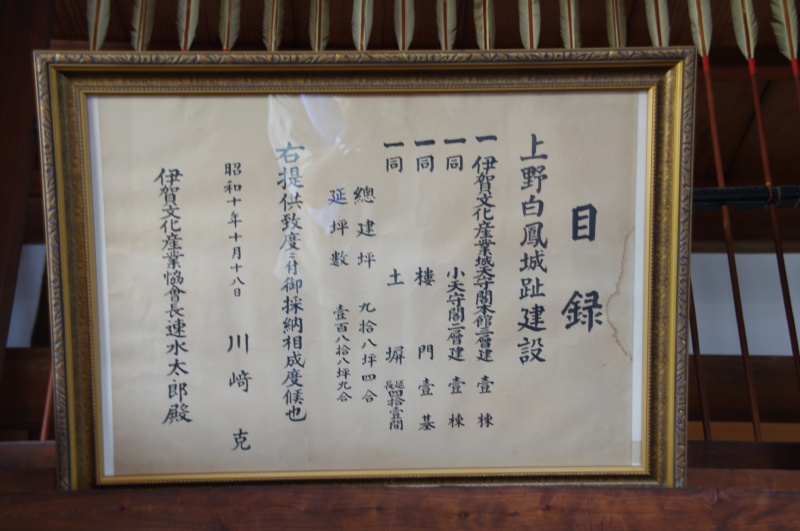 目録
上野白鳳城趾建設
一 伊賀文化産業城天守閣本館三層建 壹棟
一 同 小天守閣二層建 壹棟
一 同 樓門 壹基
一 同 土塀 延長四拾壹間
總建坪 九拾八坪四合
延坪數 壹百八拾八坪九合
右提供致度ニ付御採納相成度候也
昭和十年十月十八日 川﨑克
伊賀文化産業協會長速水太郎殿